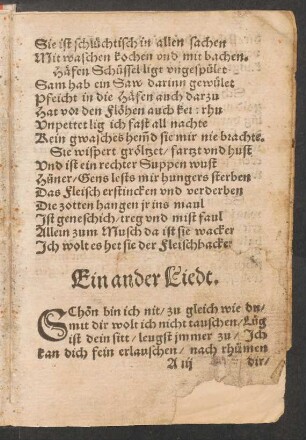 Sie ist schlüchtisch in allen sachen
Mit waschen kochen vnd mit bachen.
Häfen Schüssel ligt vngespület
Sam hab ein Saw darinn gewület
Pfeicht in die Häfen auch darzu
Hat vor den Flöhen auch kei: rhu
Vnpettet lig ich fast all nachte
Kein gwasches hemd sie mir nie brachte.
Sie wispert gröltzet/ fartzt vnd hust
Vnd ist ein rechter Suppen wust
Hüner/ Gens lests mir hungers sterben
Das Fleisch erstincken vnd verderben
Die zotten hangen jr ins maul
Ist geneschich/ treg vnd mist faul
Allein zum Musch da ist sie wacker
Ich wolt es het sie der Fleischbacke
Ein ander Liedt.
SChön bin ich nit/ zu gleich wie du/
mit dir wolt ich nicht tauschen/ Lüg
ist dein sitt/ leugst jmmer zu/ Ich
kan dich fein erlauschen/ nach rhümen
A iij dir/